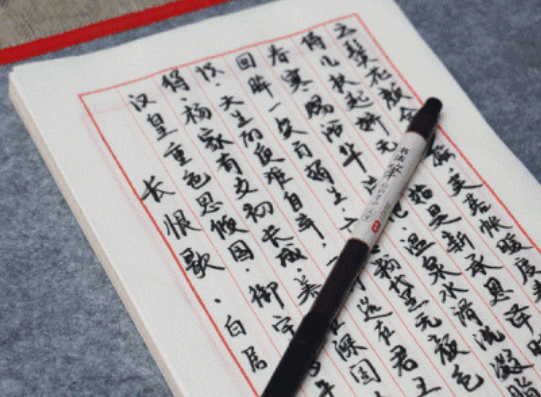 长恨歌·白居
汉皇重色思倾国·御宇
得·杨家有女初长成·养 深闺
识·天生丽质难自弃·一 选在君王
回眸一笑百媚生·六 粉黛无颜色
春寒赐浴华清 温泉水滑洗凝脂
侍儿扶起娇无 始是新承恩泽时
云鬓花颜金 蓉帐暖度春